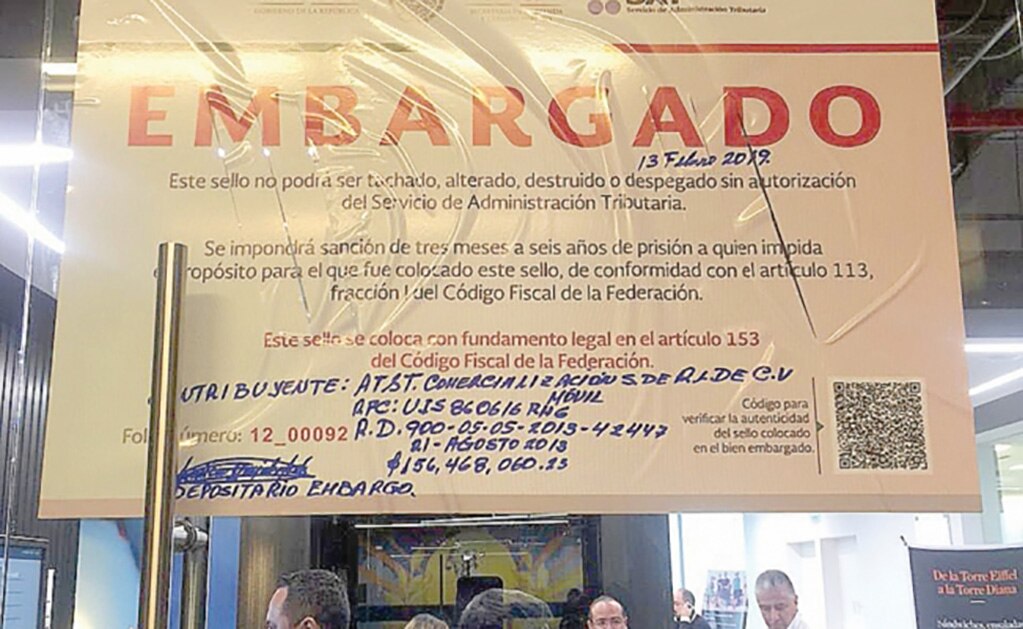 GOBIERNO DE LA REPÚBLICA
SAT
Servicio de Administración Tributaria
EMBARGADO
13 Febrero 2019.
Este sello no podrá ser tachado, alterado, destruido o despegado sin autorización
del Servicio de Administración Tributaria.
Se impondrá sanción de tres meses a seis años de prisión a quien impida
propósito para el que fue colocado este sello, de conformidad con el artículo 113,
fracción I del Código Fiscal de la Federación.
Este sello se coloca con fundamento legal en el artículo 153
del Código Fiscal de la Federación.
UTRIBUYENTE: AT&T. COMERCIALIZACIÓN S. DE R.L DE C.V
MÓVIL
RFC: UIS 860616 RH6
Folio número: 12_00092 R.D. 900-05-05-2013-42447
21-AGOSTO 2013
$156,468,060.23
DEPOSITARIO EMBARGO.
Código para
verificar la autenticidad
del sello colocado
en el bien embargado.
De la Torre Eiffel
a la Torre Diana
Sándwiches, ensaladas